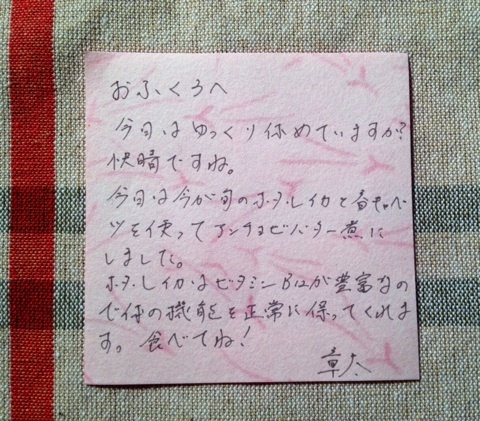 おふくろへ
今日はゆっくり休めていますか?
快晴ですね。
今日は今が旬のホタルイカと春キャベ
ツを使ってアンチョビバター煮に
しました。
ホタルイカはビタミンB12が豊富なの
で体の機能を正常に保ってくれま
す。食べてね!
章太